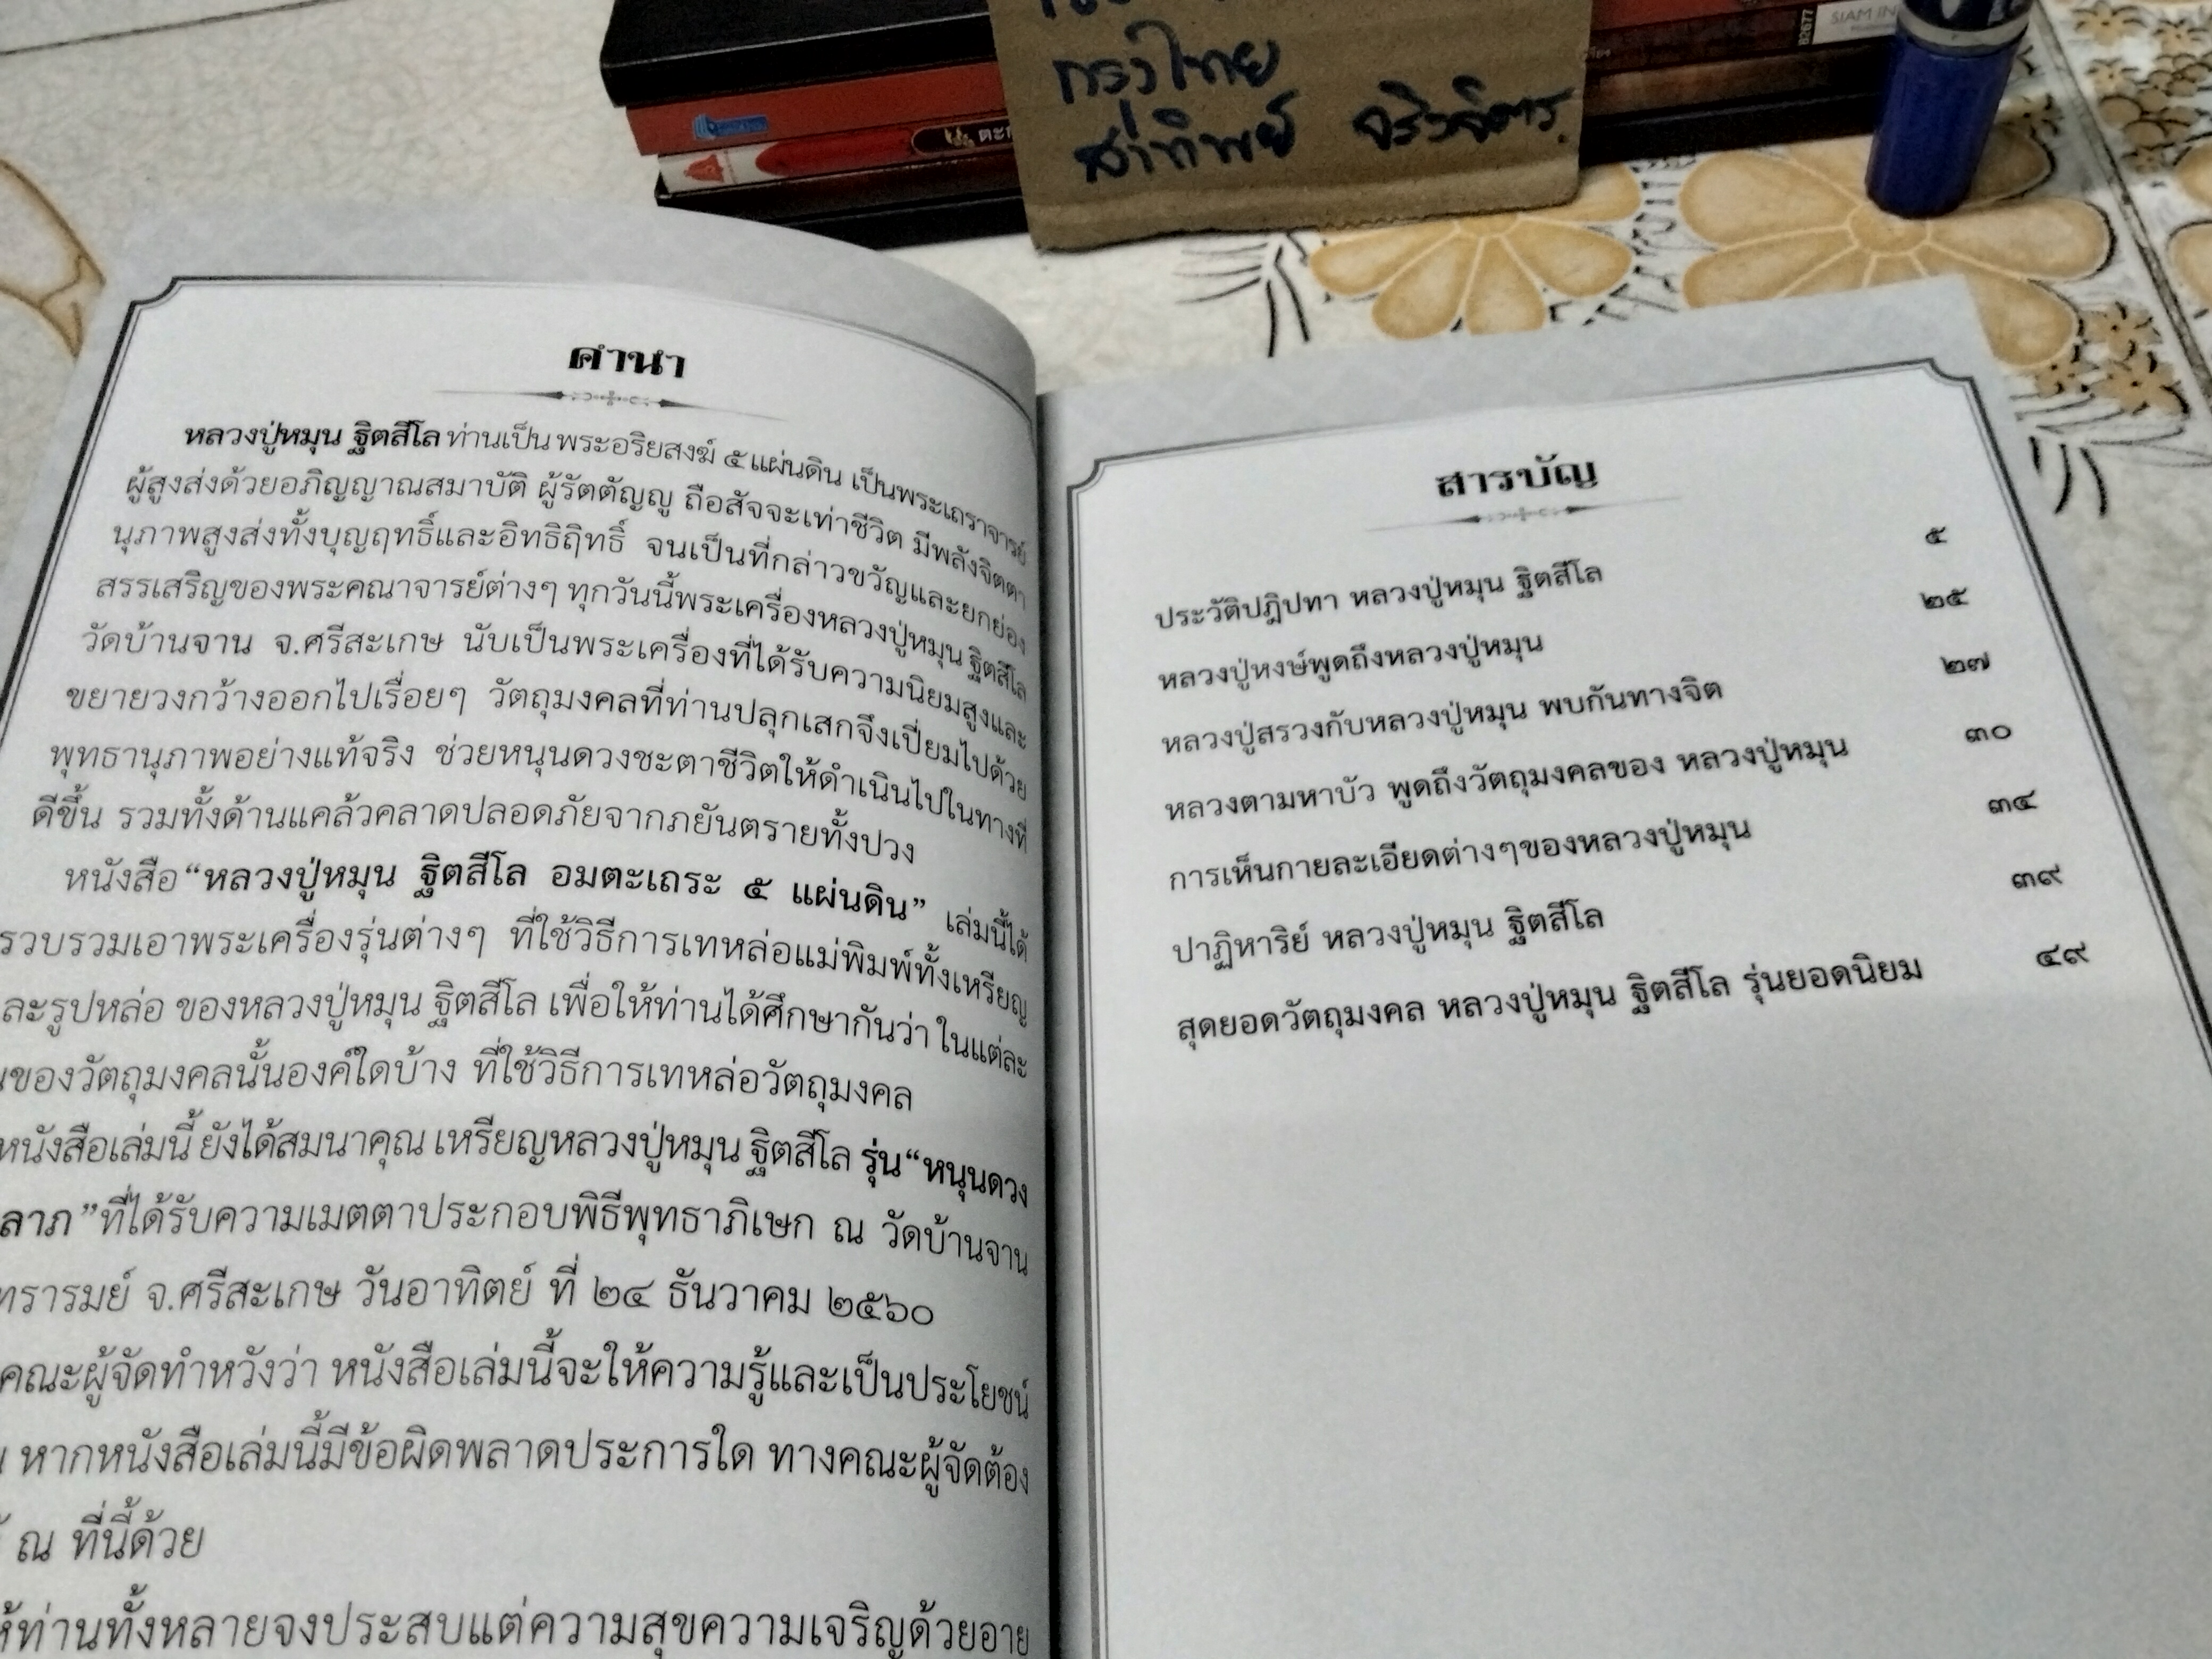 กรุงไทย
สาทิพย์ จริงจิตร
SIAM IN
82677
คำนำ
หลวงปู่หมุน ฐิตสีโล ท่านเป็น พระอริยสงฆ์ ๕ แผ่นดิน เป็นพระเถราจารย์
ผู้สูงส่งด้วยอภิญญาณสมาบัติ ผู้รัตตัญญู ถือสัจจะเท่าชีวิต มีพลังจิตตา
นุภาพสูงส่งทั้งบุญฤทธิ์และอิทธิฤิทธิ์ จนเป็นที่กล่าวขวัญและยกย่อง
สรรเสริญของพระคณาจารย์ต่างๆ ทุกวันนี้พระเครื่องหลวงปู่หมุน ฐิตสีโล
วัดบ้านจาน จ.ศรีสะเกษ นับเป็นพระเครื่องที่ได้รับความนิยมสูงและ
ขยายวงกว้างออกไปเรื่อยๆ วัตถุมงคลที่ท่านปลุกเสกจึงเปี่ยมไปด้วย
พุทธานุภาพอย่างแท้จริง ช่วยหนุนดวงชะตาชีวิตให้ดำเนินไปในทางที่
ดีขึ้น รวมทั้งด้านแคล้วคลาดปลอดภัยจากภยันตรายทั้งปวง
หนังสือ “หลวงปู่หมุน ฐิตสีโล อมตะเถระ ๕ แผ่นดิน” เล่มนี้ได้
รวบรวมเอาพระเครื่องรุ่นต่างๆ ที่ใช้วิธีการเทหล่อแม่พิมพ์ทั้งเหรียญ
ละรูปหล่อ ของหลวงปู่หมุน ฐิตสีโล เพื่อให้ท่านได้ศึกษากันว่า ในแต่ละ
ของวัตถุมงคลนั้นองค์ใดบ้าง ที่ใช้วิธีการเทหล่อวัตถุมงคล
หนังสือเล่มนี้ ยังได้สมนาคุณ เหรียญหลวงปู่หมุน ฐิตสีโล รุ่น “หนุนดวง
ลาภ” ที่ได้รับความเมตตาประกอบพิธีพุทธาภิเษก ณ วัดบ้านจาน
ทรารมย์ จ.ศรีสะเกษ วันอาทิตย์ ที่ ๒๔ ธันวาคม ๒๕๖๐
คณะผู้จัดทำหวังว่า หนังสือเล่มนี้จะให้ความรู้และเป็นประโยชน์
หากหนังสือเล่มนี้มีข้อผิดพลาดประการใด ทางคณะผู้จัดต้อง
ณ ที่นี้ด้วย
ห้ท่านทั้งหลายจงประสบแต่ความสุขความเจริญด้วยอาย
สารบัญ
ประวัติปฎิปทา หลวงปู่หมุน ฐิตสีโล ๕
หลวงปู่หงษ์พูดถึงหลวงปู่หมุน ๒๕
หลวงปู่สรวงกับหลวงปู่หมุน พบกันทางจิต ๒๗
หลวงตามหาบัว พูดถึงวัตถุมงคลของ หลวงปู่หมุน ๓๐
การเห็นกายละเอียดต่างๆของหลวงปู่หมุน ๓๔
ปาฏิหาริย์ หลวงปู่หมุน ฐิตสีโล ๓๙
สุดยอดวัตถุมงคล หลวงปู่หมุน ฐิตสีโล รุ่นยอดนิยม ๔๙